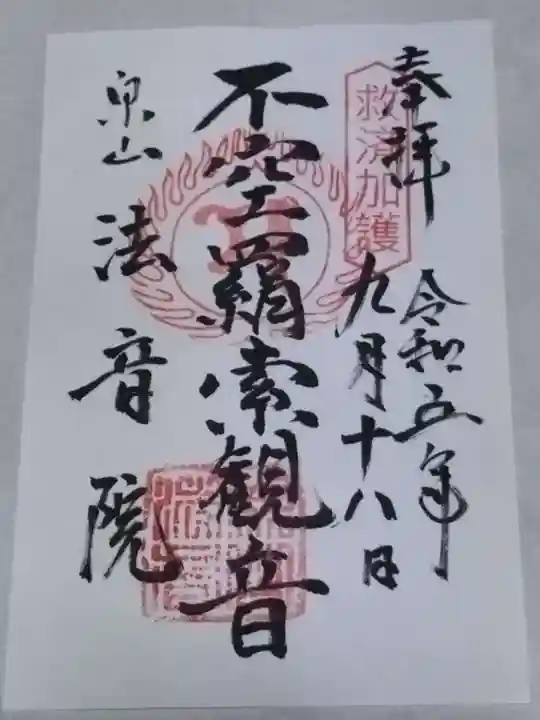 奉拝
救済加護
令和五年
九月十八日
不空羂索観音
泉山
法音院